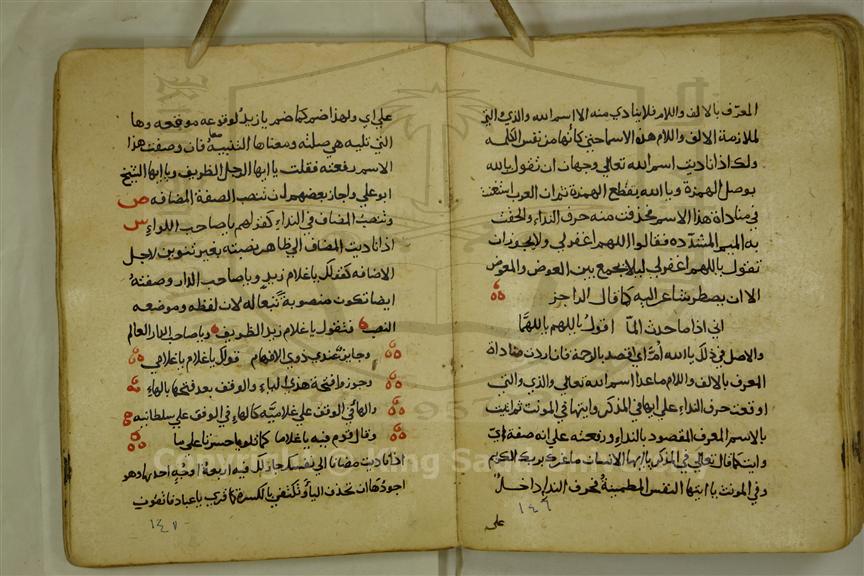 المعرّف بالالف واللام فلا ينادي منه الا اسم الله والذي والتي
لملازمة الالف واللام هذه الاسما حتي كانها من نفس الكلمه
ولك اذا ناديت اسم الله تعالي وجهان ان تقول يا الله
بوصل الهمزة ويا الله بقطع الهمزة ثم ان العرب استغنت
في مناداة هذا الاسم فحذفت منه حرف النداء والحقت
به الميم المشدّده فقالوا اللهم اغفر لي ولا يجوز ان
تقول يا اللهم اغفر لي ليلا تجمع بين العوض والمعوض
الا ان يضطر شاعر اليه كما قال الراجز
اني اذا ما حدث المّا اقول يا اللهم يا اللهمّا
والاصل في ذلك يا الله اُمّنا اي اقصد بالرحمة فان اردت مناداة
المعرف بالالف واللام ما عدا اسم الله تعالي والذي والتي
اوقعت حرف النداء علي ايها في المذكر وايتها في المونث ثم اتيت
بالاسم المعرف المقصود بالنداء ورفعته علي انه صفة ايّ
وايت كما قال تعالي في المذكر يا ايها الانسان ما غرك بربك الكريم
وفي المونث يا ايتها النفس المطمينة فحرف النداء داخل
علي
١٤٦
علي اي ولهذا ضم كما ضم يا زيد لوقوعه موقعه وها
التي تليه هي صلته ومعناها التنبيه فان وصفت هذا
الاسم رفعته فقلت يا ايها الرجل الظريف ويا ايها الشيخ
ابو علي واجاز بعضهم ان تنصب الصفة المضافه ص
وتنصب المضاف في النداء كقولهم يا صاحب الرداء س
اذا ناديت المضاف الي ظاهر نصبته بغير تنوين لاجل
الاضافه كقولك يا غلام زيد ويا صاحب الدار وصفته
ايضا تكون منصوبة تبعا له لان لفظه وموضعه
النصب فتقول يا غلام زيد الظريف ويا صاحب الدار العالم
وجايز عندي ذوي الافهام قولك يا غلام يا غلامي
وجوزوا فتحة هذي الياء والوقف بعد فتحها بالهاء
والها في الوقف علي غلاميه كالهاء في الوقف علي سلطانيه
وقال قوم فيه يا غلاما كما تلوا يا حسرتا علي ما
اذا ناديت مضافا الي نفسك جاز لك فيه اربعة اوجه احدها وهو
اجودها ان تحذف اليا وتكتفي بالكسرة كما قري يا عباد فاتقون
١٤٧